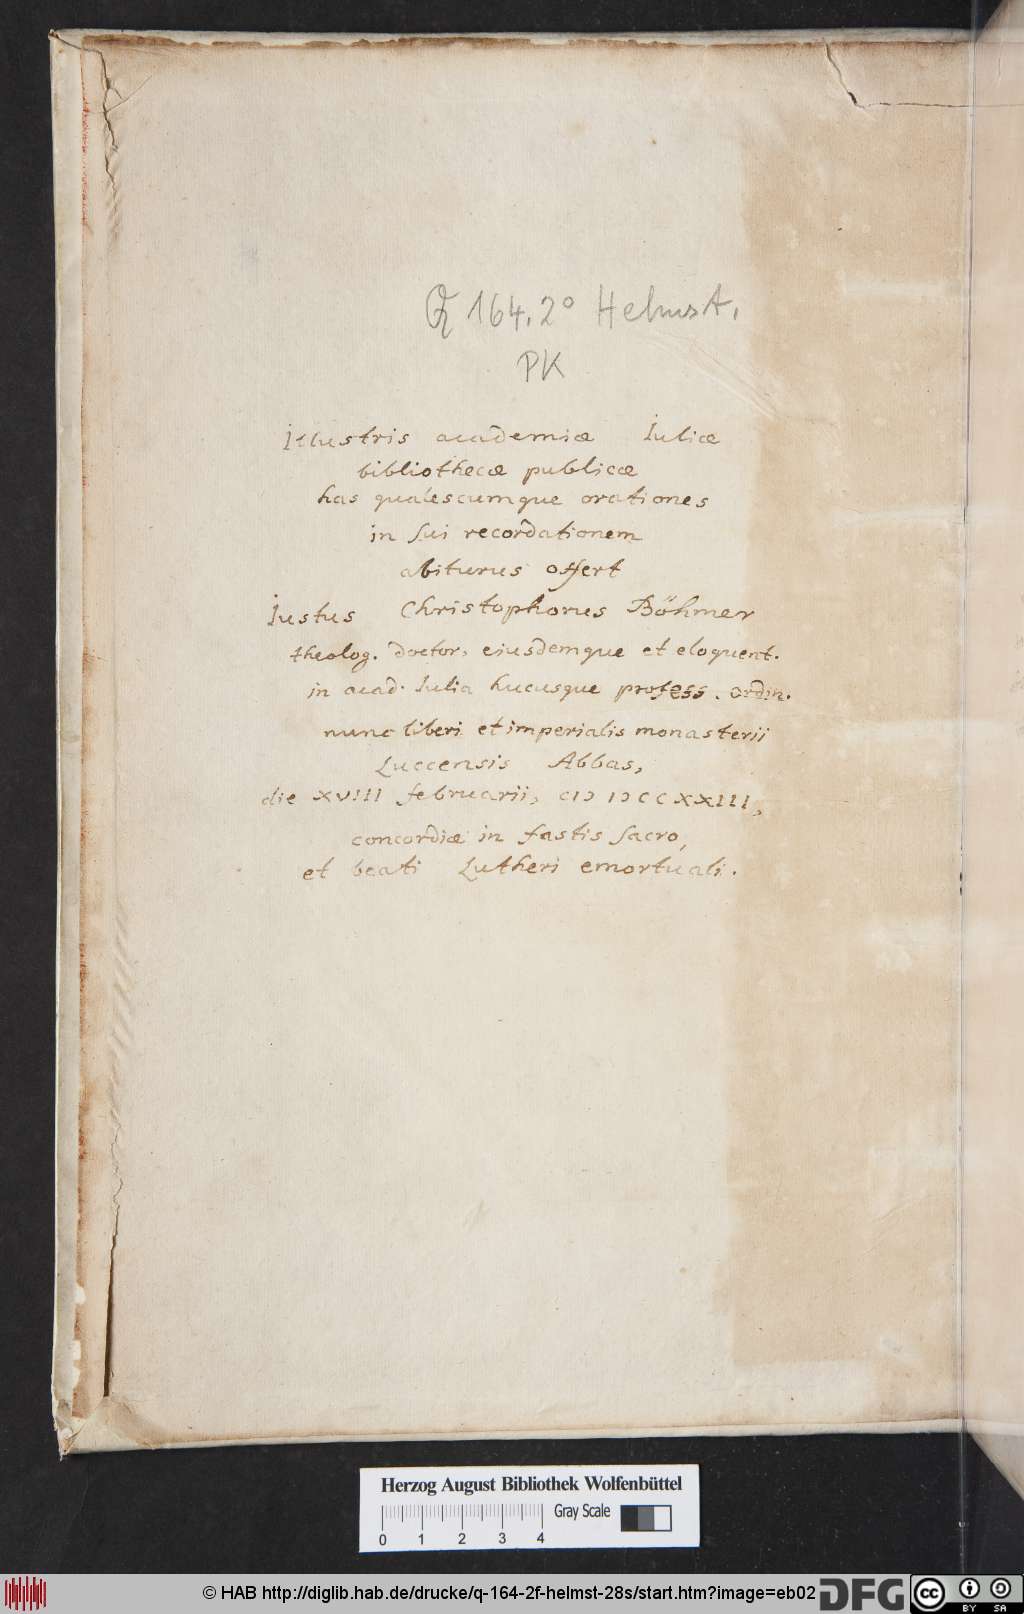 Q 164. 2° Helmst.
PK
Illustris academiæ Iuliæ
bibliothecæ publicæ
has qualescumque orationes
in sui recordationem
abiturus offert
Iustus Christophorus Böhmer
theolog. doctor, eiusdemque et eloquent.
in acad. Iulia hucusque profess. ordin.
nunc liberi et imperialis monasterii
Luccensis Abbas,
die XVIII februarii, CIↃ IↃCCXXIII,
concordiæ in fastis sacro,
et beati Lutheri emortuali.
Herzog August Bibliothek Wolfenbüttel
Gray Scale
0 1 2 3 4
© HAB http://diglib.hab.de/drucke/q-164-2f-helmst-28s/start.htm?image=eb02 DFG cc BY SA